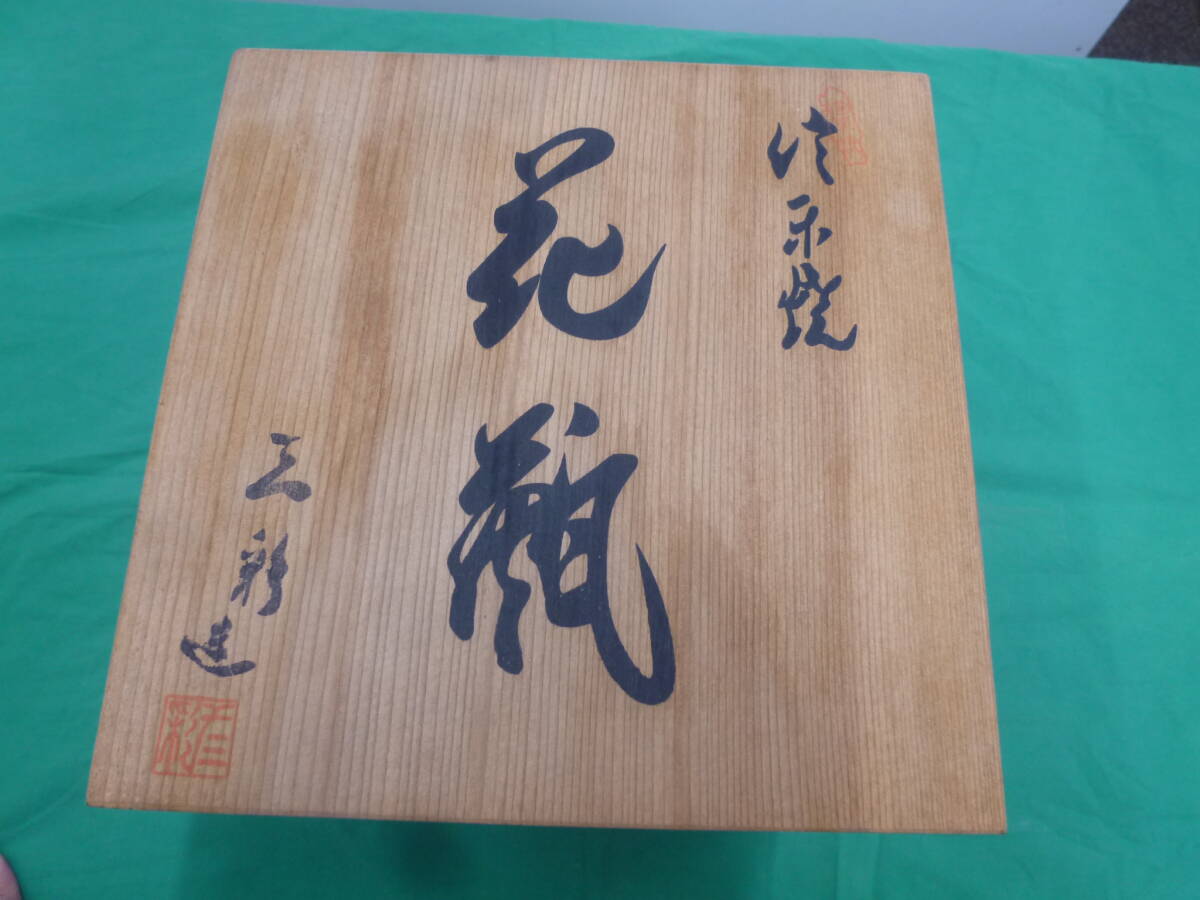 信楽焼
花瓶
三彩造